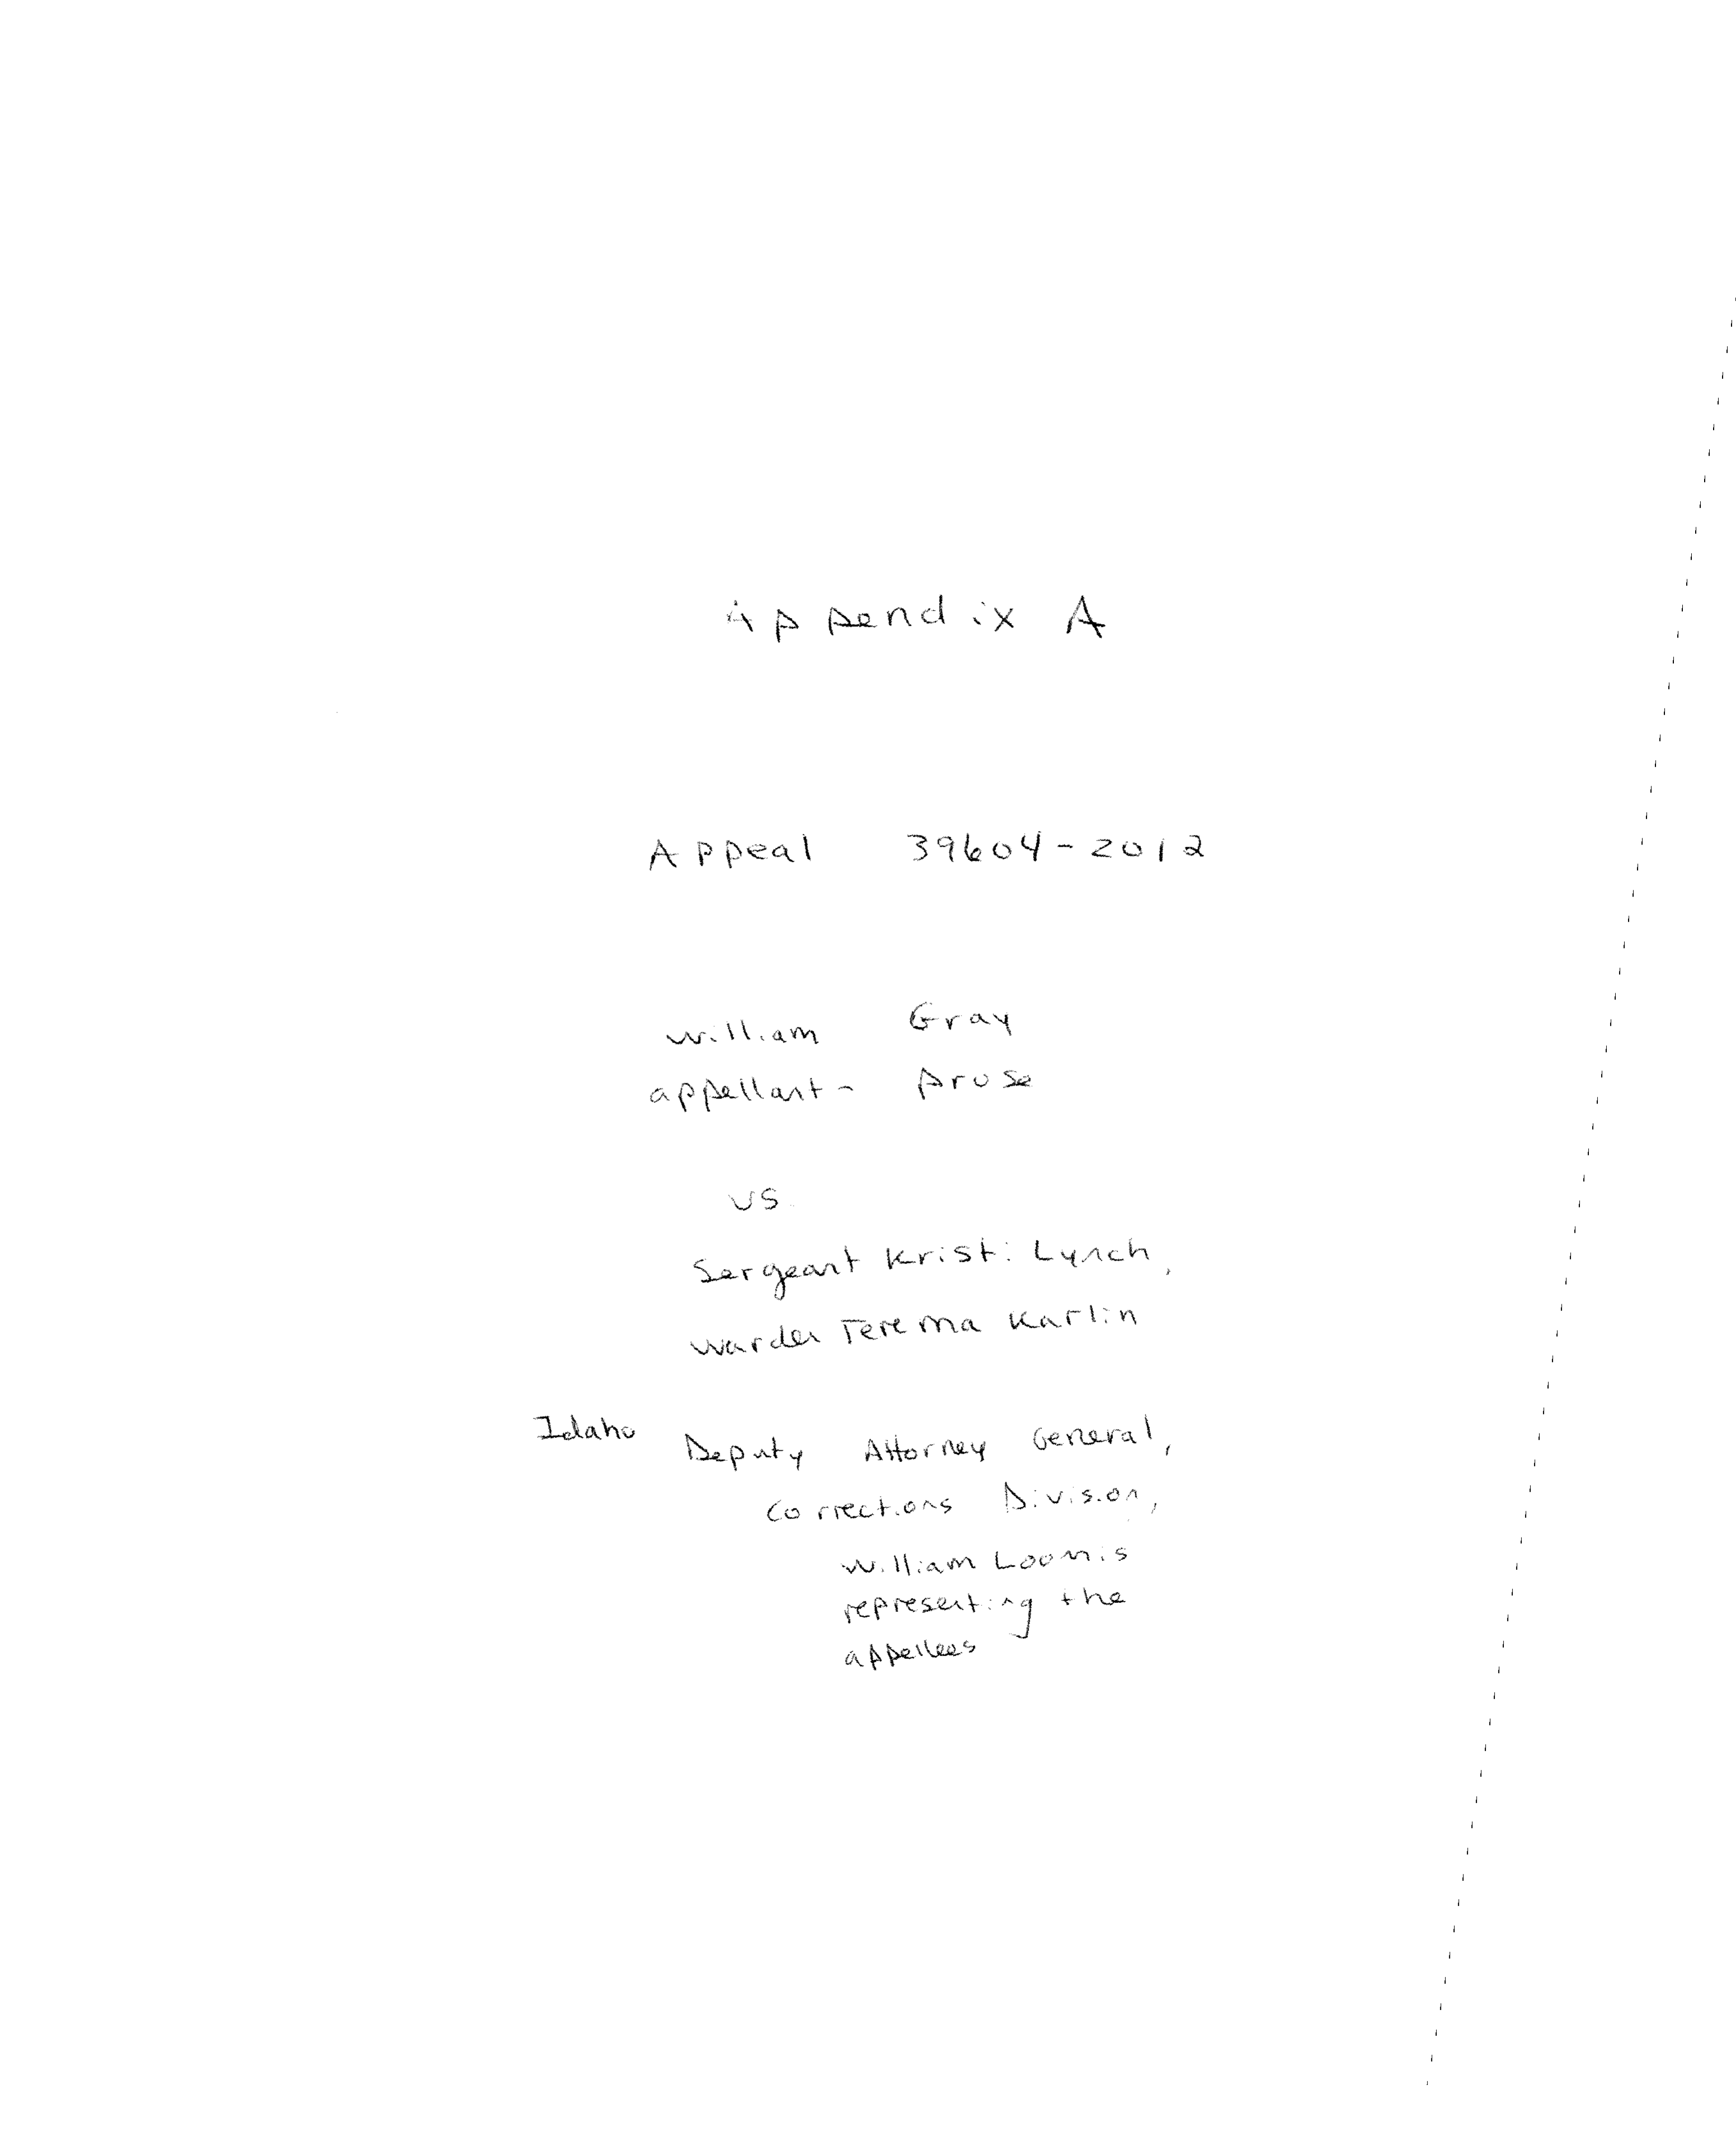 Appendix A
Appeal 39604-2012
William Gray
appellant - prose
vs.
Sergeant Kristi Lynch,
Warden Terema Karlin
Idaho Deputy Attorney General,
Corrections Division,
William Loomis
representing the
appellees